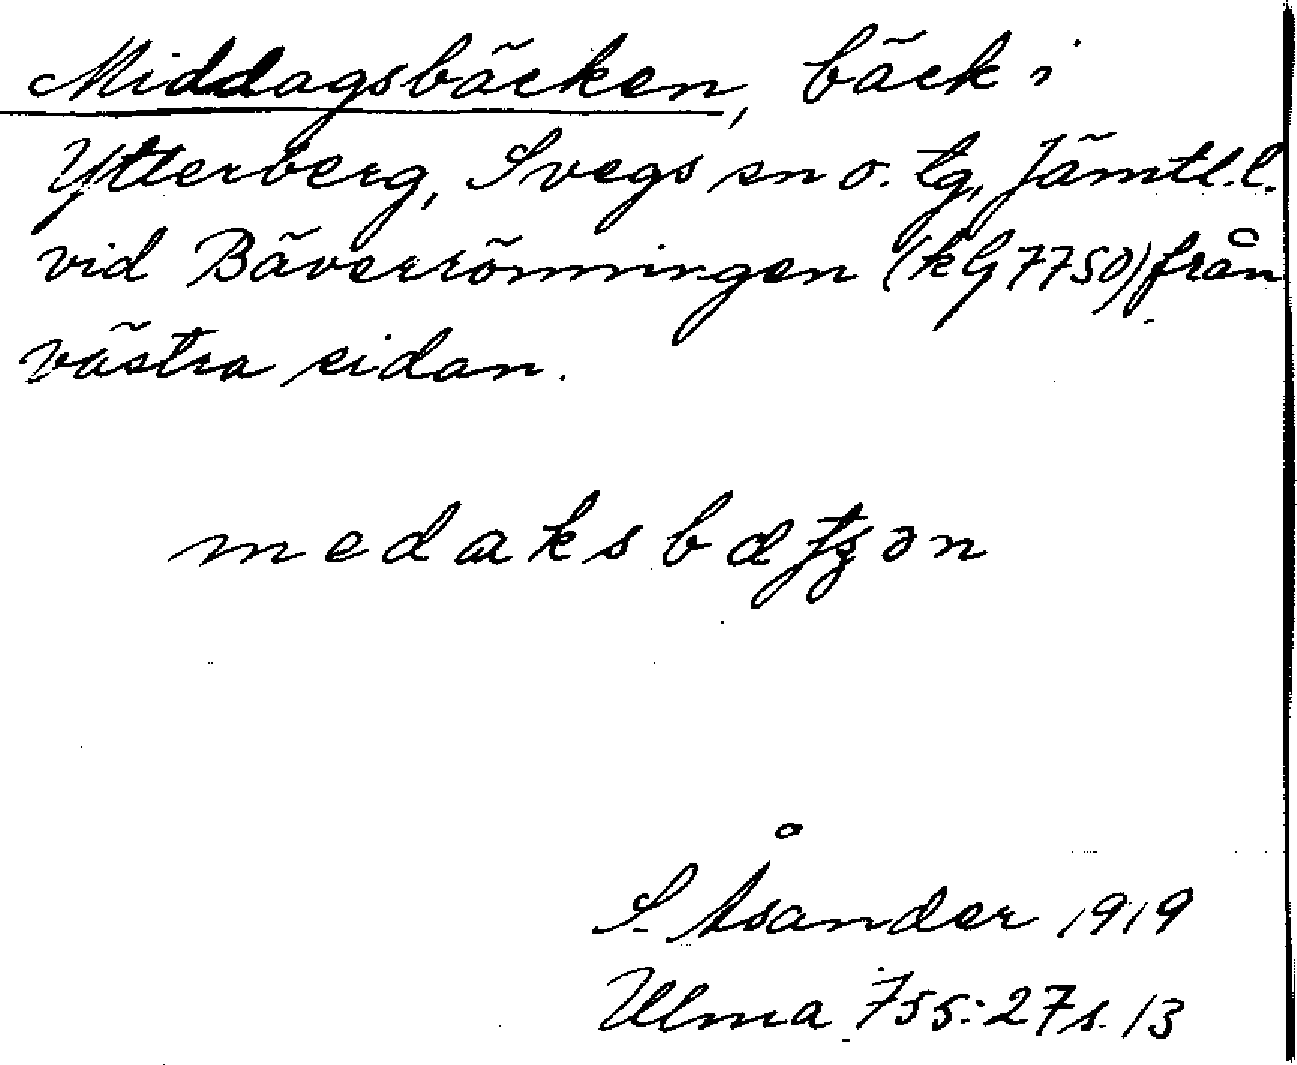 Middagsbäcken, bäck i
Ytterberg, Svegs sn o. tg, Jämtl.l.
vid Bäverrönningen (kG7750) från
västra sidan.
medaksbætʂən
S. Åsander 1919
Ulma 755:27 s. 13